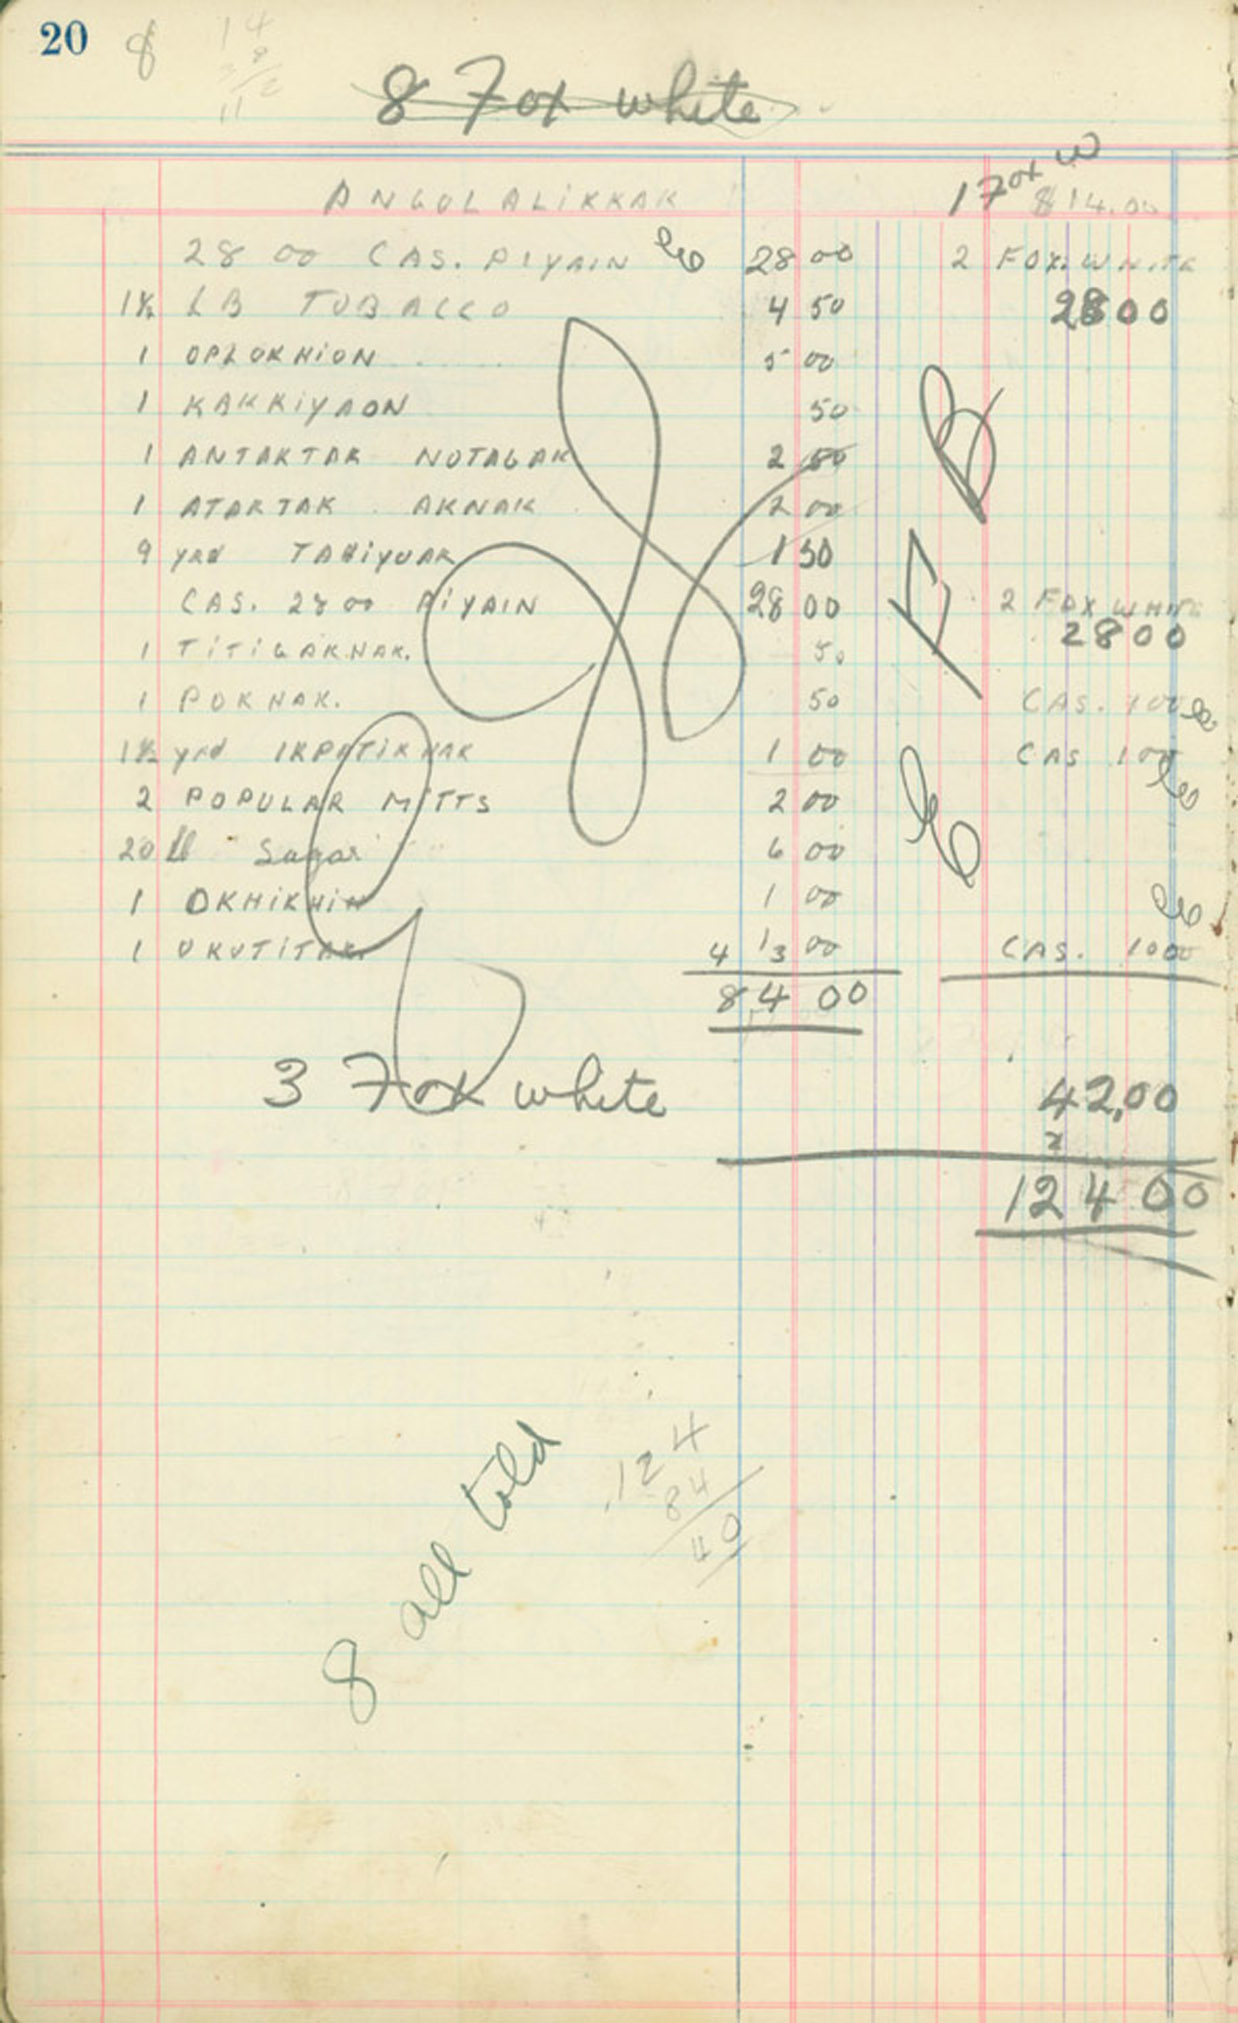 20 8 14
8 Fox white
1 Fox W
ANGULALIKKAK $14.00
28 00 CAS. PIYAIN 28 00 2 FOX. WHITE
1½ LB TOBACCO 4 50 2800
1 OPLOKHION 5 00
1 KAKKIYAON 50
1 ANTAKTAK NOTAGAK 2 50
1 ATAKTAK AKNAK 2 00
9 yrd 1 50
CAS. 28 00 PIYAIN 28 00 2 FOX WHITE
2800
1 TITIGAKNAK. 50
1 POKNAK. 50 CAS. 100
1½ yrd 1 00 CAS 100
2 POPULAR MITTS 2 00
20 lb Sugar 6 00
1 OKHIKHIN 1 00
1 UKUTITAK 4 13 00 CAS. 1000
84 00
3 Fox white 42,00
2
124 00
8 all told
124
84
40